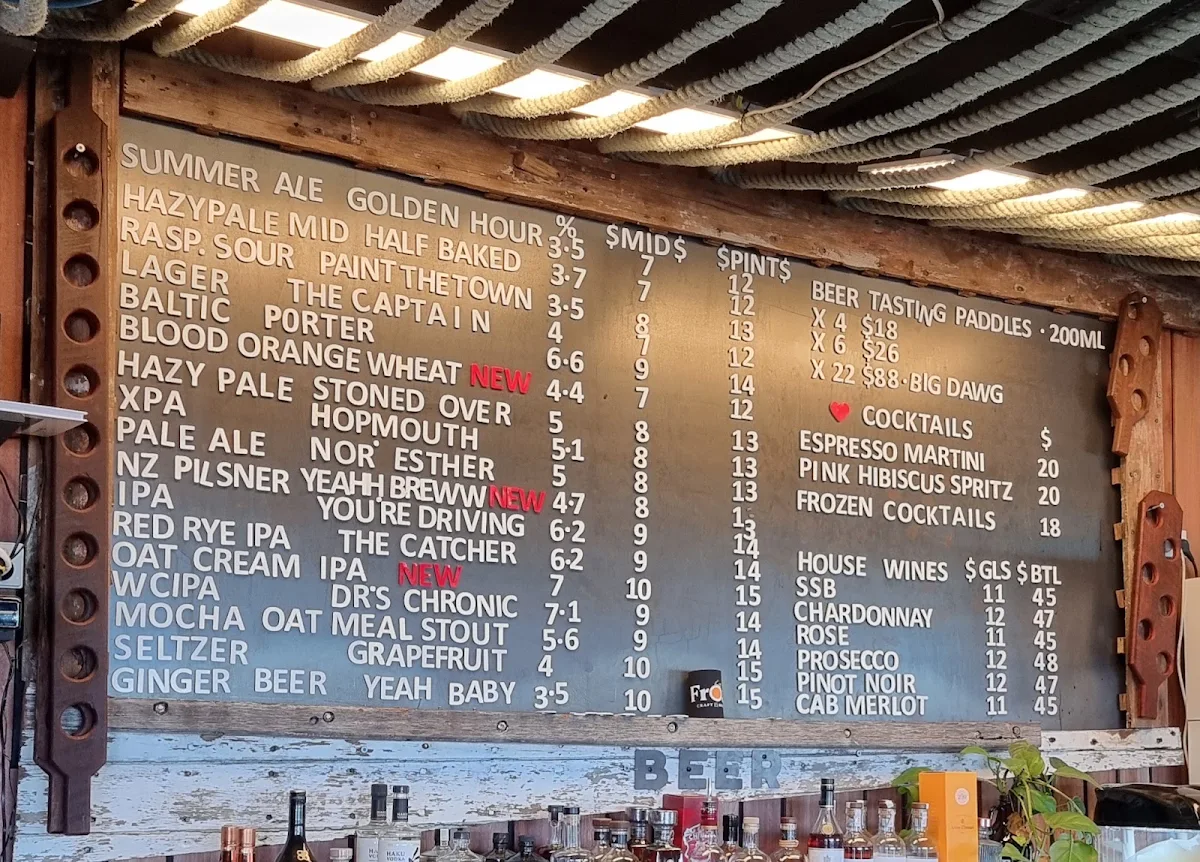 % $MID$ $PINT$
SUMMER ALE GOLDEN HOUR 3.5 7 12
HAZYPALE MID HALF BAKED 3.7 7 12
RASP. SOUR PAINTTHETOWN 3.5 8 13
LAGER THE CAPTAIN 4 7 12
BALTIC PORTER 6.6 9 14
BLOOD ORANGE WHEAT NEW 4.4 7 12
HAZY PALE STONED OVER 5 8 13
XPA HOPMOUTH 5.1 8 13
PALE ALE NOR' ESTHER 5 8 13
NZ PILSNER YEAHH BREWW NEW 4.7 8 13
IPA YOU'RE DRIVING 6.2 9 14
RED RYE IPA THE CATCHER 6.2 9 14
OAT CREAM IPA NEW 7 10 15
WCIPA DR'S CHRONIC 7.1 9 14
MOCHA OAT MEAL STOUT 5.6 9 14
SELTZER GRAPEFRUIT 4 10 15
GINGER BEER YEAH BABY 3.5 10 15
BEER TASTING PADDLES · 200ML
X 4 $18
X 6 $26
X 22 $88·BIG DAWG
COCKTAILS $
ESPRESSO MARTINI 20
PINK HIBISCUS SPRITZ 20
FROZEN COCKTAILS 18
HOUSE WINES $GLS $BTL
SSB 11 45
CHARDONNAY 12 47
ROSE 11 45
PROSECCO 12 48
PINOT NOIR 12 47
CAB MERLOT 11 45
BEER